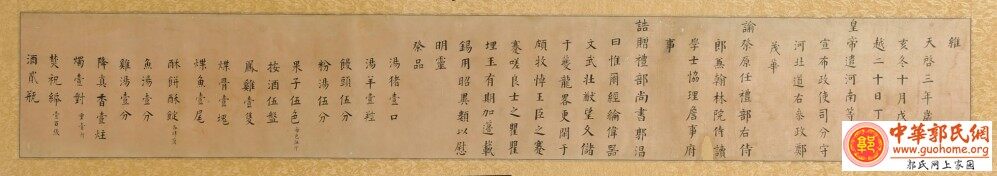 維
天啓三年歲
亥冬十月戊
越二十日丁
皇帝遣河南等
宣布政使司分守
河北道右叅政鄭
茂華
諭祭原任禮部右侍
郎兼翰林院侍讀
學士協理詹事府
事
誥贈禮部尚書郭淐
曰惟爾經綸偉器
文武壯猷望久儲
于夔龍畧更閑于
頗牧悼王臣之蹇
蹇嗟良士之瞿瞿
埋玉有期加籩載
錫用昭異類以慰
明靈
祭品
湯猪壹口
湯羊壹羫
饅頭伍分
粉湯伍分
果子伍色
按酒伍盤
鳳雞壹隻
煠骨壹塊
煠魚壹尾
酥餅酥錠
魚湯壹分
雞湯壹分
降真香壹炷
燭壹對
焚祝紙壹百張
酒貳瓶
中華郭氏網
www.guohome.org
郭氏网上家园